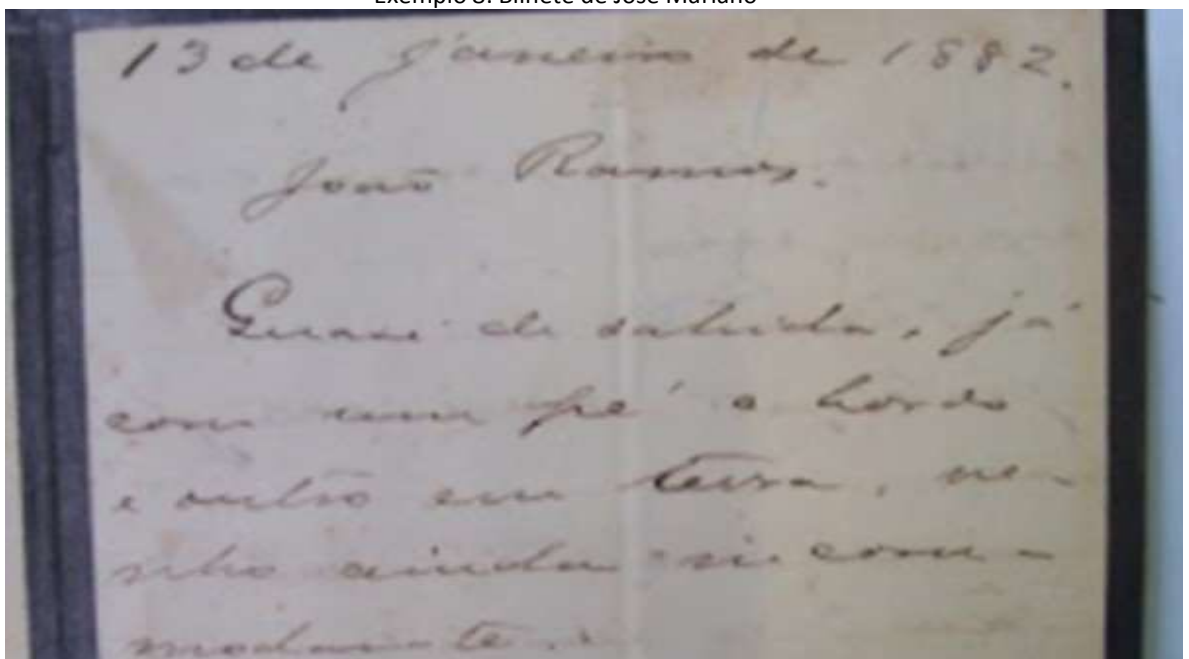 Exemplo 8: Bilhete de José Mariano
13 de Janeiro de 1882.
João Ramos.
Quase de sahida, já
com um pé a bordo
e outro em terra, ve-
nho ainda in com-
modar-te.